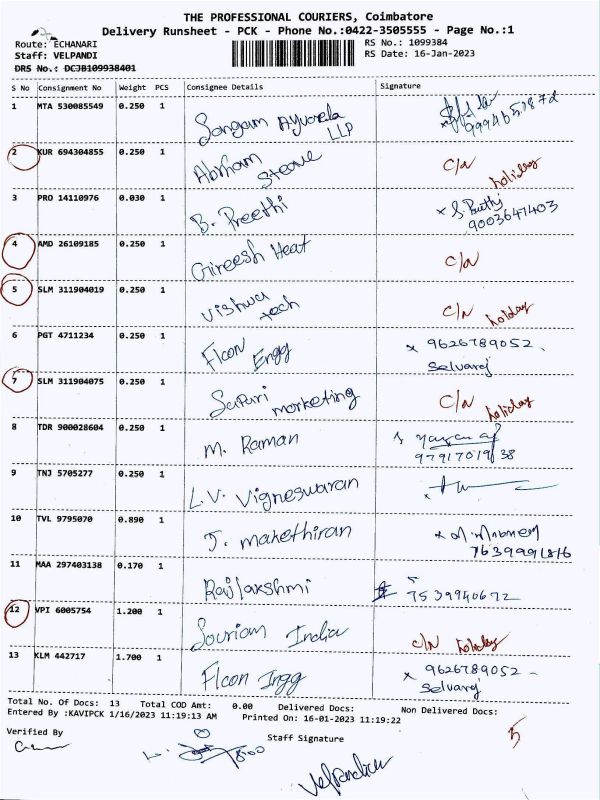 THE PROFESSIONAL COURIERS, Coimbatore
Delivery Runsheet - PCK - Phone No.:0422-3505555 - Page No.:1
Route: ECHANARI
RS No.: 1099384
Staff: VELPANDI
RS Date: 16-Jan-2023
DRS No.: DCJB109938401
S No Consignment No Weight PCS Consignee Details Signature
1 MTA 530085549 0.250 1 Sangam Ayurveda
LLP
2 KUR 694304855 0.250 1 Abraham
Steave
C/N holiday
3 PRO 14110976 0.030 1 B. Preethi
9003647403
4 AMD 26109185 0.250 1 Gireesh Heat C/N
5 SLM 311904019 0.250 1 Vishwa
tech
C/N holiday
6 PGT 4711234 0.250 1 Flcon Engg x 9626789052
Selvaraj
7 SLM 311904075 0.250 1 Safari marketing C/N holiday
8 TDR 900028604 0.250 1 M. Raman
9791701938
9 TNJ 5705277 0.250 1 L.V. Vigneswaran
10 TVL 9795070 0.890 1 J. makethiran
11 MAA 297403138 0.170 1 Rajlakshmi 7539940672
12 VPI 6005754 1.200 1 Souriam India C/N holiday
13 KLM 442717 1.700 1 Flcon Ingg x 9626789052
Selvaraj
Total No. Of Docs: 13 Total COD Amt: 0.00 Delivered Docs: Non Delivered Docs:
Entered By :KAVIPCK 1/16/2023 11:19:13 AM Printed On: 16-01-2023 11:19:22
5
Verified By
Staff Signature
Velpandian